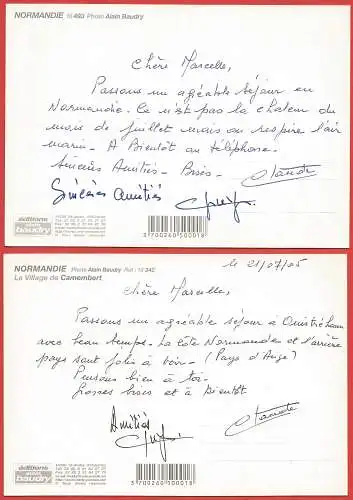 NORMANDIE 16 493 Photo Alain Baudry
Chère Marcelle,
Passons un agréable séjour en
Normandie. Ce n'est pas la chaleur du
mois de juillet mais on respire l'air
marin. A Bientôt au téléphone.
Sincères Amitiés - Bises - Claude
Sincères amitiés
éditions
alain
baudry
3 700260 500018
NORMANDIE Photo Alain Baudry - Réf : 16 342
Le Village de Camembert
le 21/07/05
Chère Marcelle,
Passons un agréable séjour à Ouistreham
avec beau temps. La Côte Normande et l'arrière
pays sont jolis à voir - (Pays d'Auge)
Pensons bien à toi.
Grosses bises et à Bientôt.
Claude
Amitiés
éditions
alain
baudry
3 700260 500018